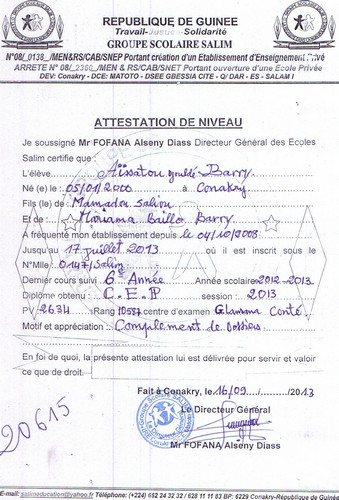 REPUBLIQUE DE GUINEE
Travail-Justice-Solidarité
GROUPE SCOLAIRE SALIM
N°08/_0138_/MEN&RS/CAB/SNEP Portant création d'un Etablissement d'Enseignement Privé
ARRETE N° 08/_2360_/MEN & RS/CAB/SNET Portant ouverture d'une Ecole Privée
DEV: Conakry - DCE: MATOTO - DSEE GBESSIA CITE - Q/ DAR - ES - SALAM I
ATTESTATION DE NIVEAU
Je soussigné Mr FOFANA Alseny Diass Directeur Général des Ecoles
Salim certifie que :
L'élève Aïssatou Barry
Né (e) le : 05/01/2000 à Conakry
Fils (le) de: Mamadou Saliou
Et de : Mariama Baïllo Barry
A fréquenté mon établissement depuis le 04/10/2008
Jusqu'au 17 juillet 2013 où il est inscrit sous le
N°Mlle 0147/Salim
Dernier cours suivi 6e Année Année scolaire 2012-2013
Diplôme obtenu C.E.P session : 2013
PV 2634 Rang 10597 centre d'examen G. Lansana Conté
Motif et appréciation : Complement de dossiers
En foi de quoi, la présente attestation lui est délivrée pour servir et valoir
ce que de droit.
Fait à Conakry, le 16/09/2013
Le Directeur Général
Mr FOFANA Alseny Diass
20615
E-mail: salimeducation@yahoo.fr Téléphone: (+224) 662 24 32 32 / 628 11 11 83 BP: 6229 Conakry-République de Guinée